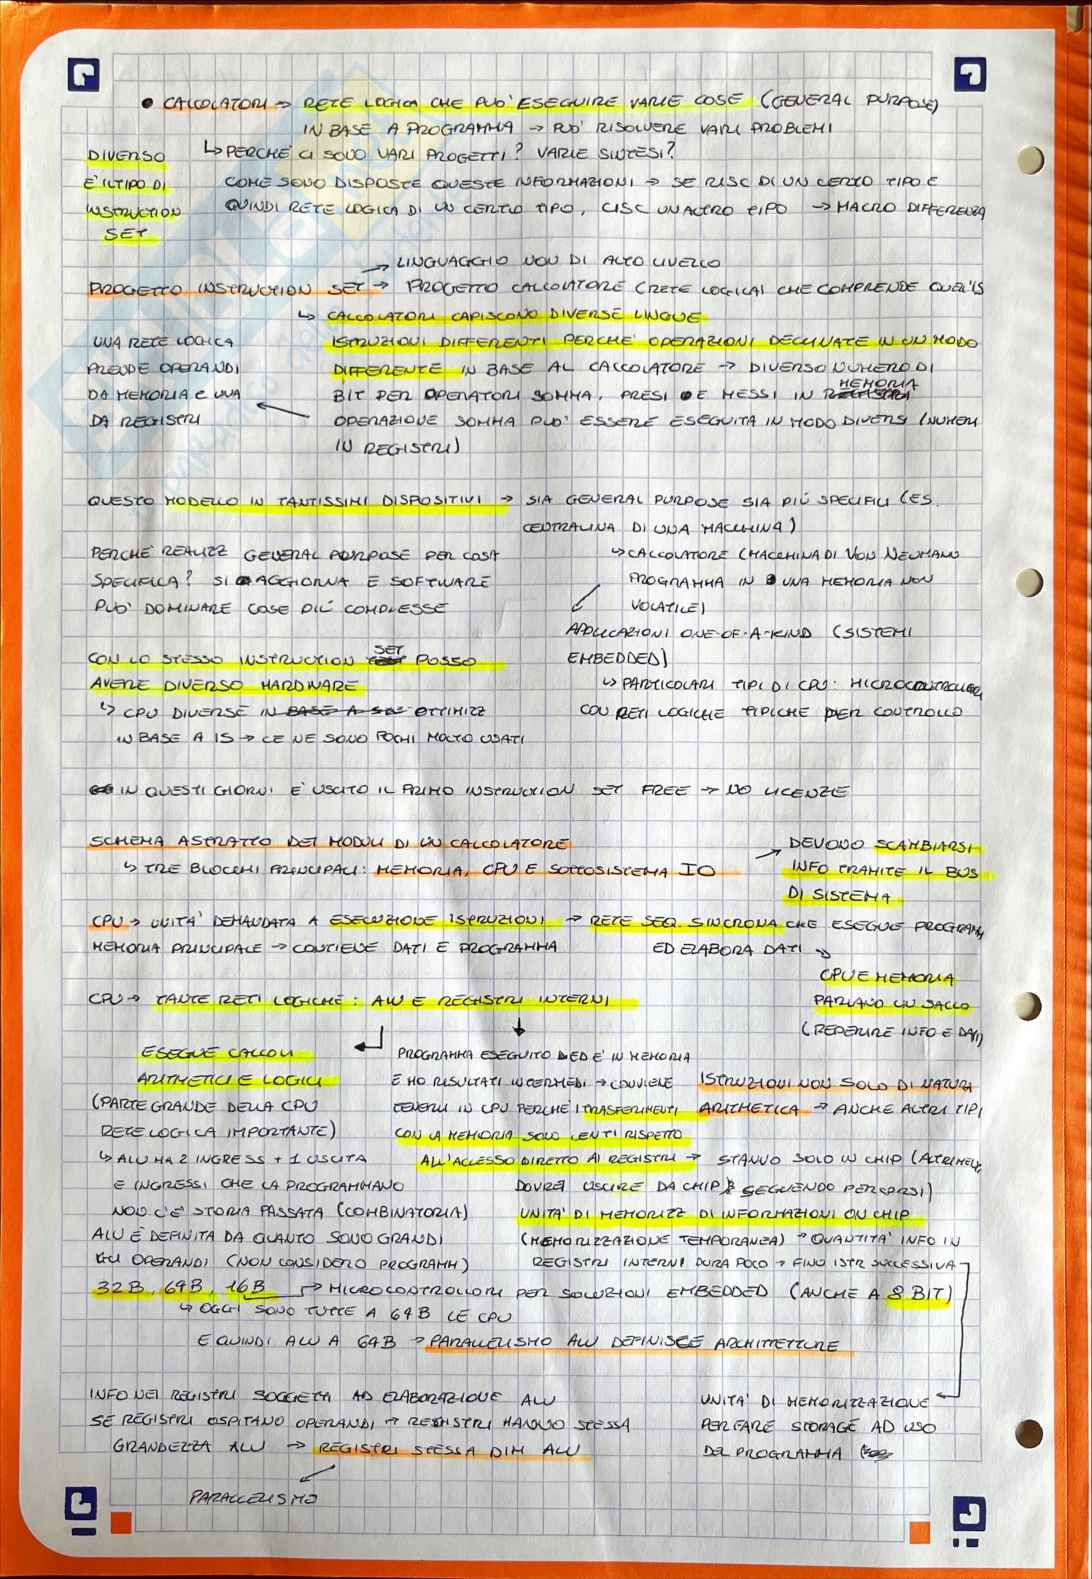 • CALCOLATORI → RETE LOGICA CHE PUO' ESEGUIRE VARIE COSE (GENERAL PURPOSE)
IN BASE A PROGRAMMA → PUO' RISOLVERE VARI PROBLEMI
↳ PERCHE' CI SONO VARI PROGETTI? VARIE SINTESI?
DIVERSO
E' IL TIPO DI
INSTRUCTION
SET
COME SONO DISPOSTE QUESTE INFORMAZIONI → SE RISC DI UN CERTO TIPO E
QUINDI RETE LOGICA DI UN CERTO TIPO, CISC UN ALTRO TIPO → MACRO DIFFERENZA
→ LINGUAGGIO NON DI ALTO LIVELLO
PROGETTO INSTRUCTION SET → PROGETTO CALCOLATORE (RETE LOGICA) CHE COMPRENDE QUELL'IS
↳ CALCOLATORI CAPISCONO DIVERSE LINGUE
ISTRUZIONI DIFFERENTI PERCHE' OPERAZIONI DECLINATE IN UN MODO
DIFFERENTE IN BASE AL CALCOLATORE → DIVERSO NUMERO DI
BIT PER OPERATORI SOMMA, PRESI E MESSI IN MEMORIA
OPERAZIONE SOMMA PUO' ESSERE ESEGUITA IN MODO DIVERSI (NUMERI
IN REGISTRI)
UNA RETE LOGICA
PRENDE OPERANDI
DA MEMORIA E UNA
DA REGISTRI
QUESTO MODELLO IN TANTISSIMI DISPOSITIVI → SIA GENERAL PURPOSE SIA PIÙ SPECIFICI (ES.
CENTRALINA DI UNA MACCHINA)
PERCHE' REALIZZ GENERAL PURPOSE PER COSA
SPECIFICA? SI AGGIORNA E SOFTWARE
PUO' DOMINARE COSE PIÙ COMPLESSE
↳ CALCOLATORE (MACCHINA DI VON NEUMANN
PROGRAMMA IN UNA MEMORIA NON
VOLATILE)
APPLICAZIONI ONE-OF-A-KIND (SISTEMI
EMBEDDED)
↳ PARTICOLARI TIPI DI CPU: MICROCONTROLLORI
CON RETI LOGICHE TIPICHE PER CONTROLLO
CON LO STESSO INSTRUCTION SET POSSO
AVERE DIVERSO HARDWARE
↳ CPU DIVERSE IN BASE A SET OTTIMIZZ
IN BASE A IS → CE NE SONO POCHI MOLTO USATI
IN QUESTI GIORNI E' USCITO IL PRIMO INSTRUCTION SET FREE → NO LICENZE
SCHEMA ASTRATTO DEI MODULI DI UN CALCOLATORE
↳ TRE BLOCCHI PRINCIPALI: MEMORIA, CPU E SOTTOSISTEMA IO
→ DEVONO SCAMBIARSI
INFO TRAMITE IL BUS
DI SISTEMA
CPU → UNITA' DEMANDATA A ESECUZIONE ISTRUZIONI → RETE SEQ. SINCRONA CHE ESEGUE PROGRAMMI
ED ELABORA DATI
MEMORIA PRINCIPALE → CONTIENE DATI E PROGRAMMA
CPU E MEMORIA
PARLANO UN SACCO
(REPERIRE INFO E DATI)
CPU → TANTE RETI LOGICHE: ALU E REGISTRI INTERNI
ESEGUE CALCOLI
ARITMETICI E LOGICI
(PARTE GRANDE DELLA CPU
RETE LOGICA IMPORTANTE)
↳ ALU HA 2 INGRESS + 1 USCITA
E INGRESSI CHE LA PROGRAMMANO
NON C'E' STORIA PASSATA (COMBINATORIA)
ALU È DEFINITA DA QUANTO SONO GRANDI
GLI OPERANDI (NON CONSIDERO PROGRAMM)
PROGRAMMA ESEGUITO DED E' IN MEMORIA
E HO RISULTATI INTERMEDI → CONVIENE
TENERLI IN CPU PERCHE' I TRASFERIMENTI
CON LA MEMORIA SOLO LENTI RISPETTO
ALL'ACCESSO DIRETTO AI REGISTRI → STANNO SOLO IN CHIP (ALTRIMENTI
DOVREI USCIRE DA CHIP SEGUENDO PERCORSI)
ISTRUZIONI NON SOLO DI NATURA
ARITMETICA → ANCHE ALTRI TIPI
UNITA' DI MEMORIZZ DI INFORMAZIONI ON CHIP
(MEMORIZZAZIONE TEMPORANEA) → QUANTITA' INFO IN
REGISTRI INTERNI DURA POCO → FINO ISTR SUCCESSIVA
32B, 64B, 16B → MICROCONTROLLORI PER SOLUZIONI EMBEDDED (ANCHE A 8 BIT)
↳ OGGI SONO TUTTE A 64B LE CPU
E QUINDI ALU A 64B → PARALLELISMO ALU DEFINISCE ARCHITETTURE
INFO NEI REGISTRI SOGGETTI AD ELABORAZIONE ALU
SE REGISTRI OSPITANO OPERANDI → REGISTRI HANNO STESSA
GRANDEZZA ALU → REGISTRI STESSA DIM ALU
PARALLELISMO
UNITA' DI MEMORIZZAZIONE
PER FARE STORAGE AD USO
DEL PROGRAMMA